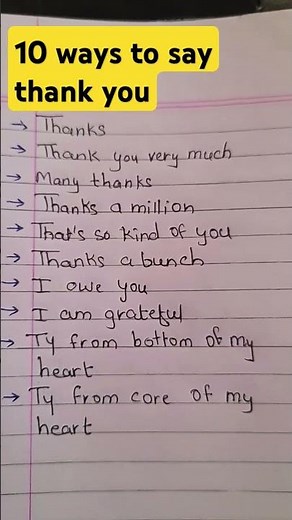 10 ways to say
thank you
→ Thanks
→ Thank you very much
→ Many thanks
→ Thanks a million
→ That's so kind of you
→ Thanks a bunch
→ I owe you
→ I am grateful
→ Ty from bottom of my
heart
→ Ty from core of my
heart